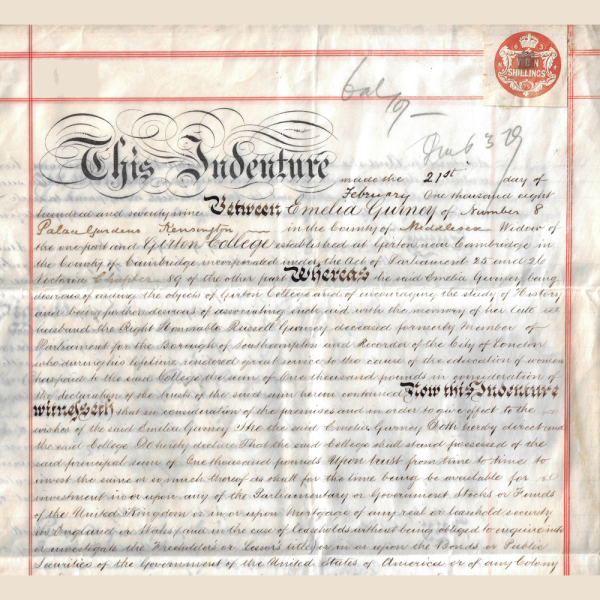 TEN
SHILLINGS
This Indenture made the 21st. day of
February One thousand eight
hundred and seventy nine Between Emelia Gurney of Number 8
Palace Gardens Kensington in the County of Middlesex Widow of
the one part and Girton College established at Girton near Cambridge in
the County of Cambridge incorporated under the Act of Parliament 25 and 26
Victoria Chapter 89 of the other part Whereas the said Emelia Gurney being
desirous of aiding the objects of Girton College and of encouraging the study of History
and being further desirous of associating such aid with the memory of her late
husband the Right Honorable Russell Gurney deceased formerly Member of
Parliament for the Borough of Southampton and Recorder of the City of London
who during his lifetime rendered great service to the cause of the education of women
has paid to the said College the sum of One thousand pounds in consideration of
the declaration of the trusts of the said sum herein contained Now this Indenture
witnesseth that in consideration of the premises and in order to give effect to the
wishes of the said Emelia Gurney She the said Emelia Gurney Doth hereby direct and
the said College Do hereby declare That the said College shall stand possessed of the
said principal sum of One thousand pounds Upon trust from time to time to
invest the same or so much thereof as shall for the time being be available for
investment in or upon any of the Parliamentary or Government Stocks or Funds
of the United Kingdom or in or upon Mortgage of any real or leasehold security
in England or Wales (and in the case of leaseholds without being obliged to enquire into
or investigate the Freeholders or Lessors title) or in or upon the Bonds or Public
Securities of the Government of the United States of America or of any Colony